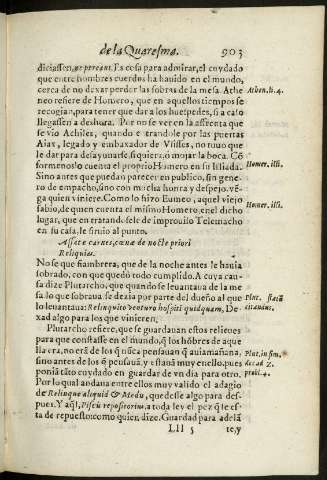 de la Quaresma. 903
diciassen, ne pereant. Es cosa para admirar, el cuydado
que entre hombres cuerdos ha hauido en el mundo,
cerca de no dexar perder las sobras de la mesa. Athe
neo refiere de Homero, que en aquellos tiempos se
recogian, para tener que dar a los huespedes, si a caso
llegassen a deshora. Por no se ver en la affrenta que
se vio Achiles, quando entrandole por las puertas
Aiax, legado y embaxador de Vlisses, no tuuo que
le dar para desayunarse, siquiera, o mojar la boca. Cõ
formenos lo cuenta el proprio Homero en su Illiada.
Sino antes que puedan parecer en publico, sin gene-
ro de empacho, sino con mucha honra y despejo, vẽ-
ga quien viniere. Como lo hizo Eumeo, aquel viejo
sabio, de quien cuenta el mismo Homero, en el dicho
lugar, que entrandosele de improuiso Telemacho
en su casa, le siruio al punto.
Assatæ carnes, cœnæ de nocte priori
Reliquias.
No se que fiambrera, que de la noche antes le hauia
sobrado, con que quedò todo cumplido. A cuya cau-
sa dize Plutarcho, que quando se leuantaua de la me
sa lo que sobraua, se dezia por parte del dueño al que
lo leuantaua: Relinquito venturo hospiti quidquam, De
xad algo para los que vinieren.
Plutarcho refiere, que se guardauan estos relieues
para que constasse en el mundo, q̃ los hõbres de aque
lla era, no erã de los q̃ nũca pensauan q̃ auia mañana,
sino antes de los q̃ pensauã, y estauã muy en ello, pues
ponia tãto cuydado en guardar de vn dia para otro.
Por lo qual andaua entre ellos muy valido el adagio
de Relinque aliquid & Medu, que desse algo para des-
pues. Y aq̃l, Piscis repositorius, a toda ley el pez q̃ le es-
ta de repuesto: como quien dize. Guardad para adelã
Lll 5 te, y
Athen. li. 4.
Homer. illi.
Homer. illi.
Plut.
Plut. in sim.
probl. 4.